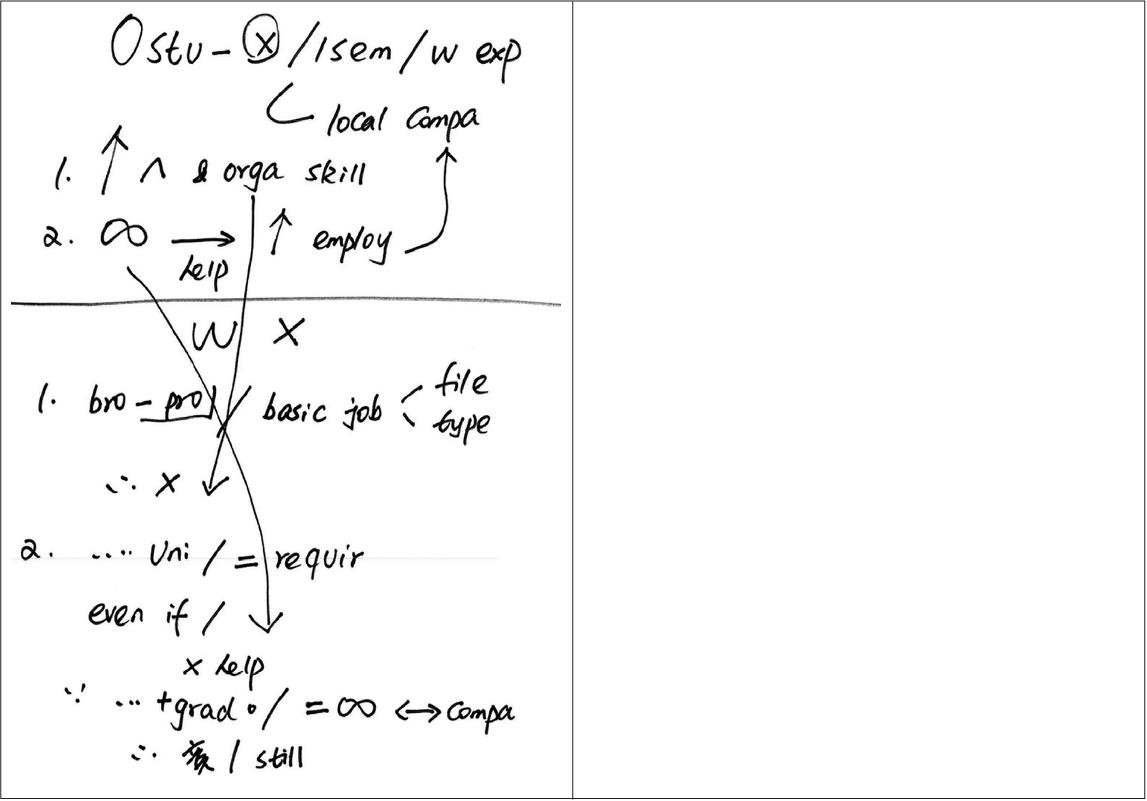 Ostu - ⓧ / 1sem / w exp
local compa
1. ↑ ^ & orga skill
2. ∞ → help ↑ employ
W X
1. bro - pro / basic job < file
type
∴ X
2. .... Uni / = requir
even if /
x help
∵ ... + grad . / = ∞ ↔ compa
∴ / still